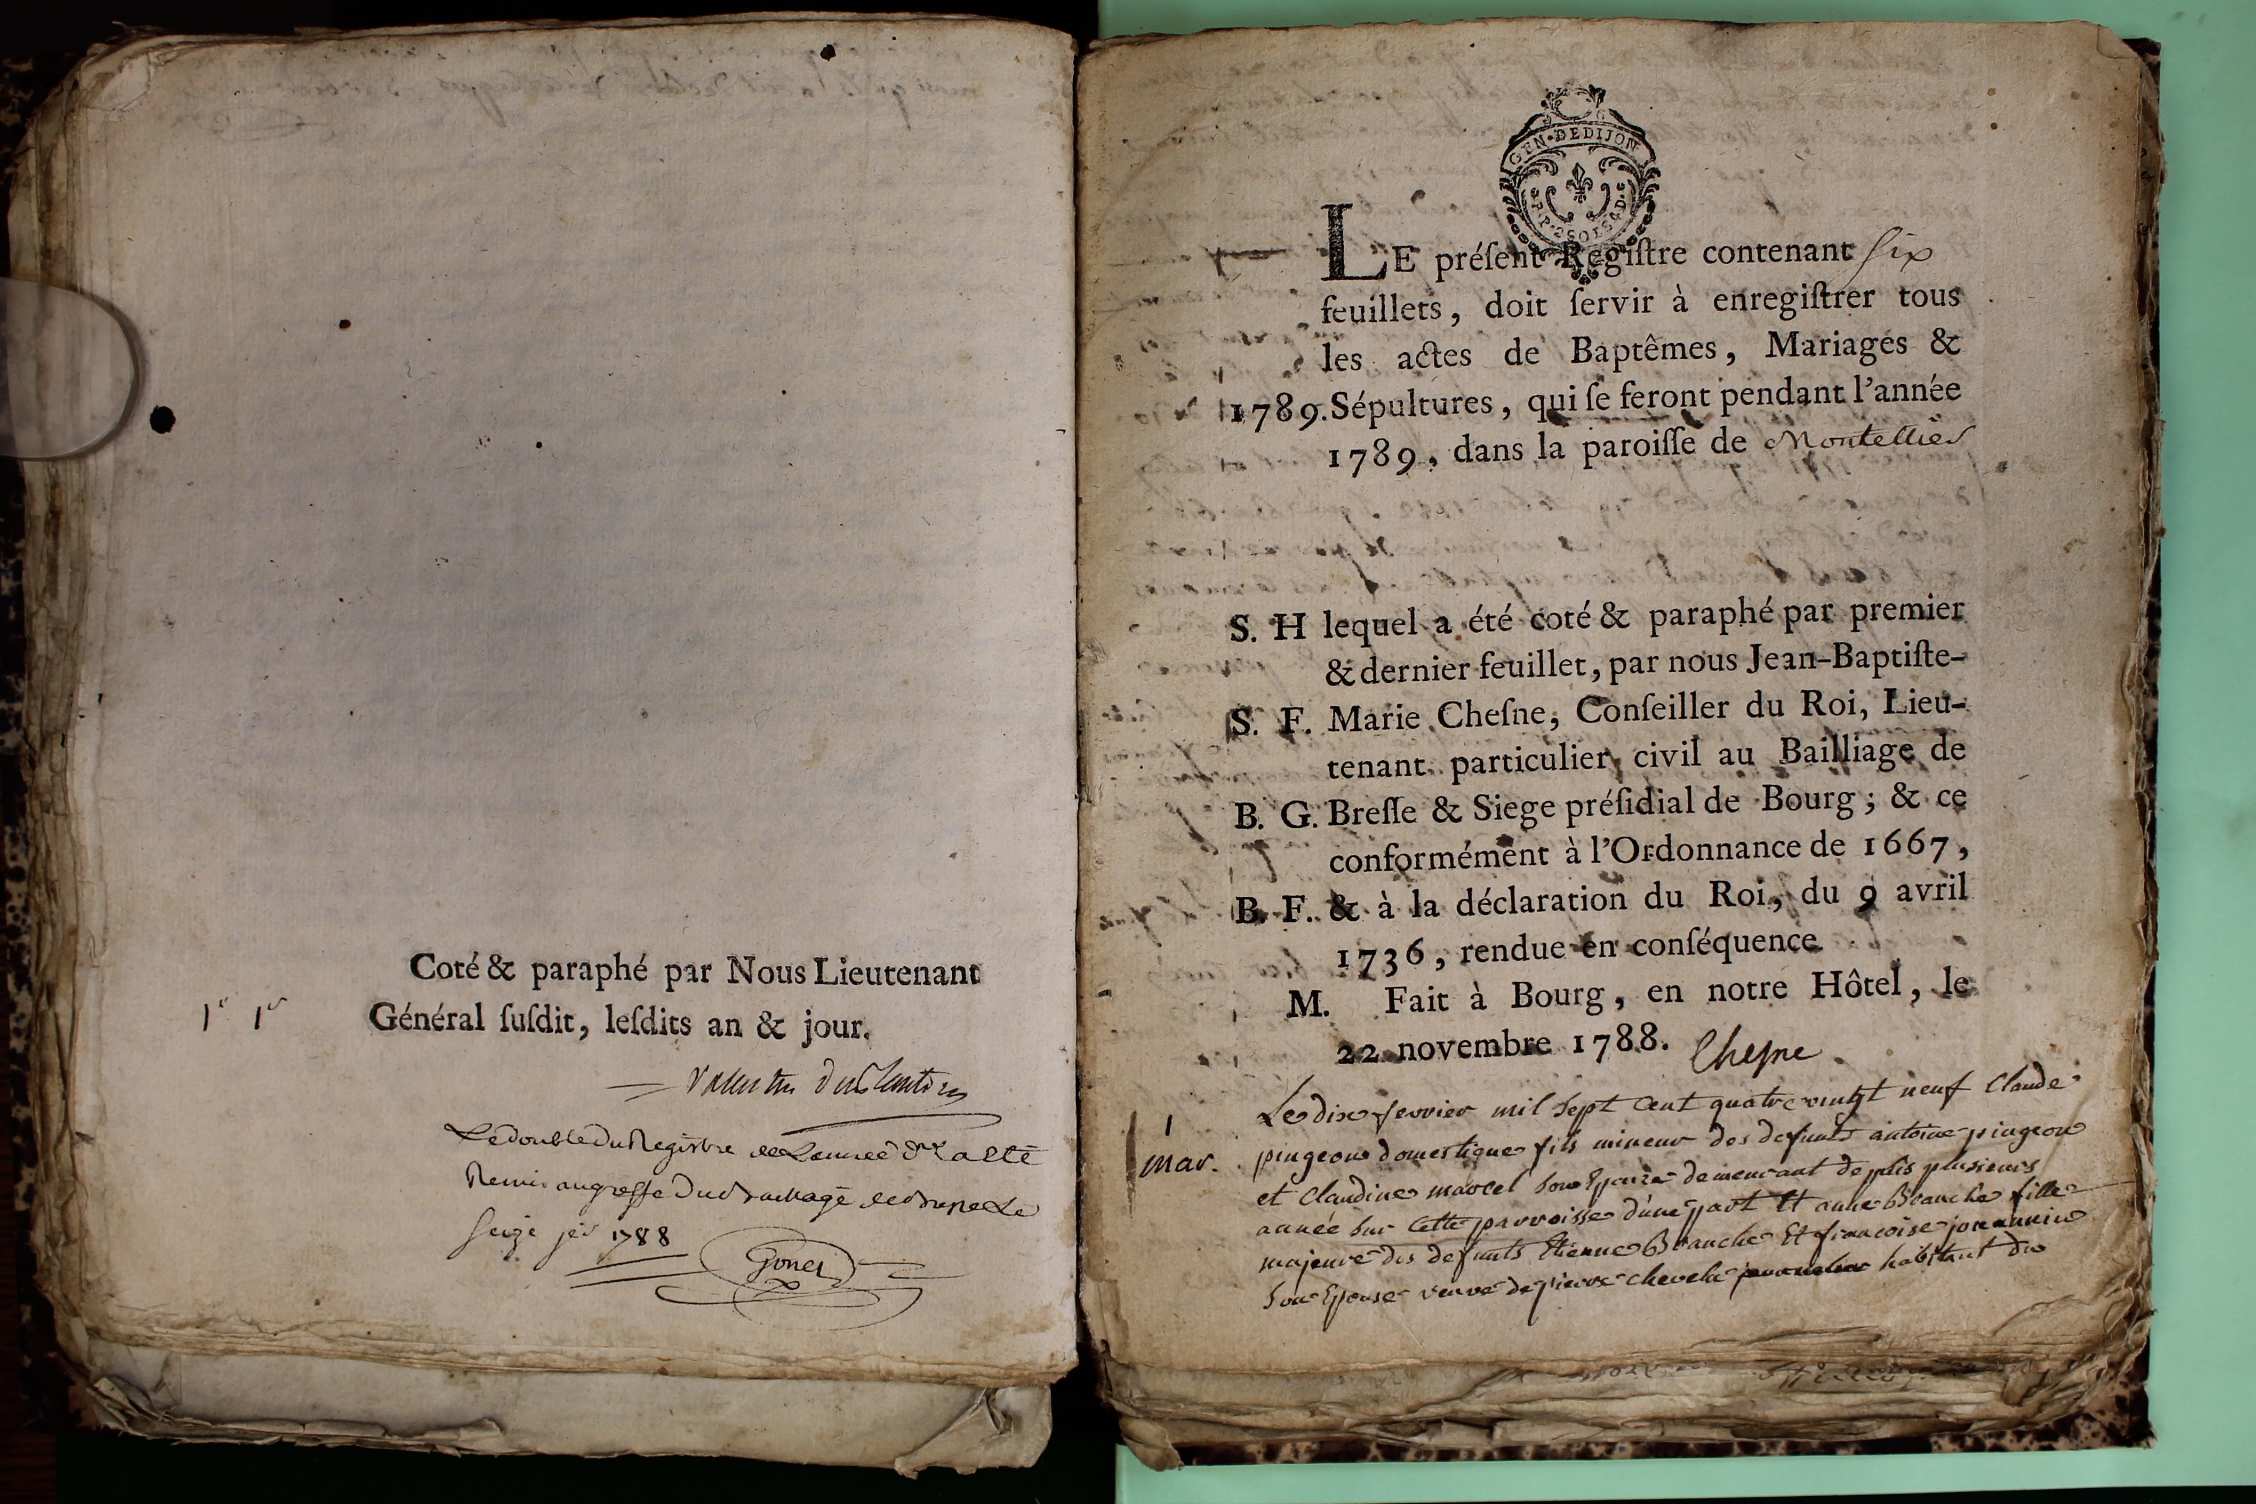 Coté & paraphé par Nous Lieutenant
Général ſuſdit, leſdits an & jour.
Le double du Registre de L'année
Remis au greffe du
Seize 1788
GEN·DE DIJON
2 SOLS
LE préſent Regiſtre contenant Six
feuillets, doit ſervir à enregiſtrer tous
les actes de Baptêmes, Mariages &
1789. Sépultures, qui ſe feront pendant l'année
1789, dans la paroiſſe de Montellier
S. H lequel a été coté & paraphé par premier
& dernier feuillet, par nous Jean-Baptiſte-
S. F. Marie Cheſne, Conſeiller du Roi, Lieu-
tenant particulier civil au Bailliage de
B. G. Breſſe & Siege préſidial de Bourg; & ce
conformément à l'Ordonnance de 1667,
B. F. & à la déclaration du Roi, du 9 avril
1736, rendue en conſéquence
M. Fait à Bourg, en notre Hôtel, le
22 novembre 1788. Chesne
1
mar.
Le dix fevrier mil Sept Cent quatre vingt neuf Claude
pingeon domestique fils mineur des defunts antoine pingeon
et Claudine marcel Son Epouse demeurant depuis plusieurs
année Sur Cette parroisse d'une part Et anne Branche fille
majeure des defunts Etienne Branche Et francoise jonannin
Son Epouse veuve de pierre habitant du